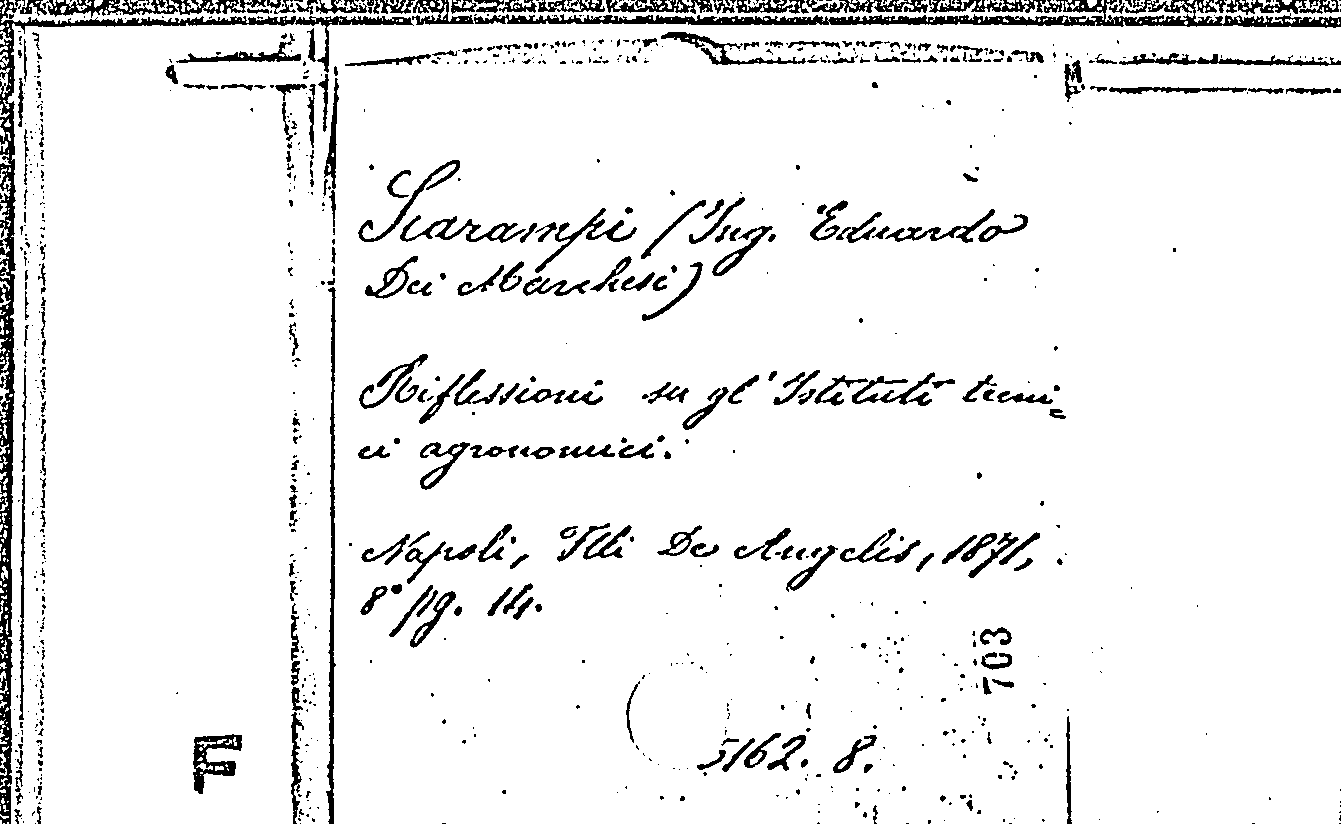 Scarampi (Ing. Eduardo
Dei Marchesi)
Riflessioni su gl'Istituti tecni=
ci agronomici.
Napoli, Flli De Angelis, 1871,
8° pg. 14.
703
5162. 8.
F